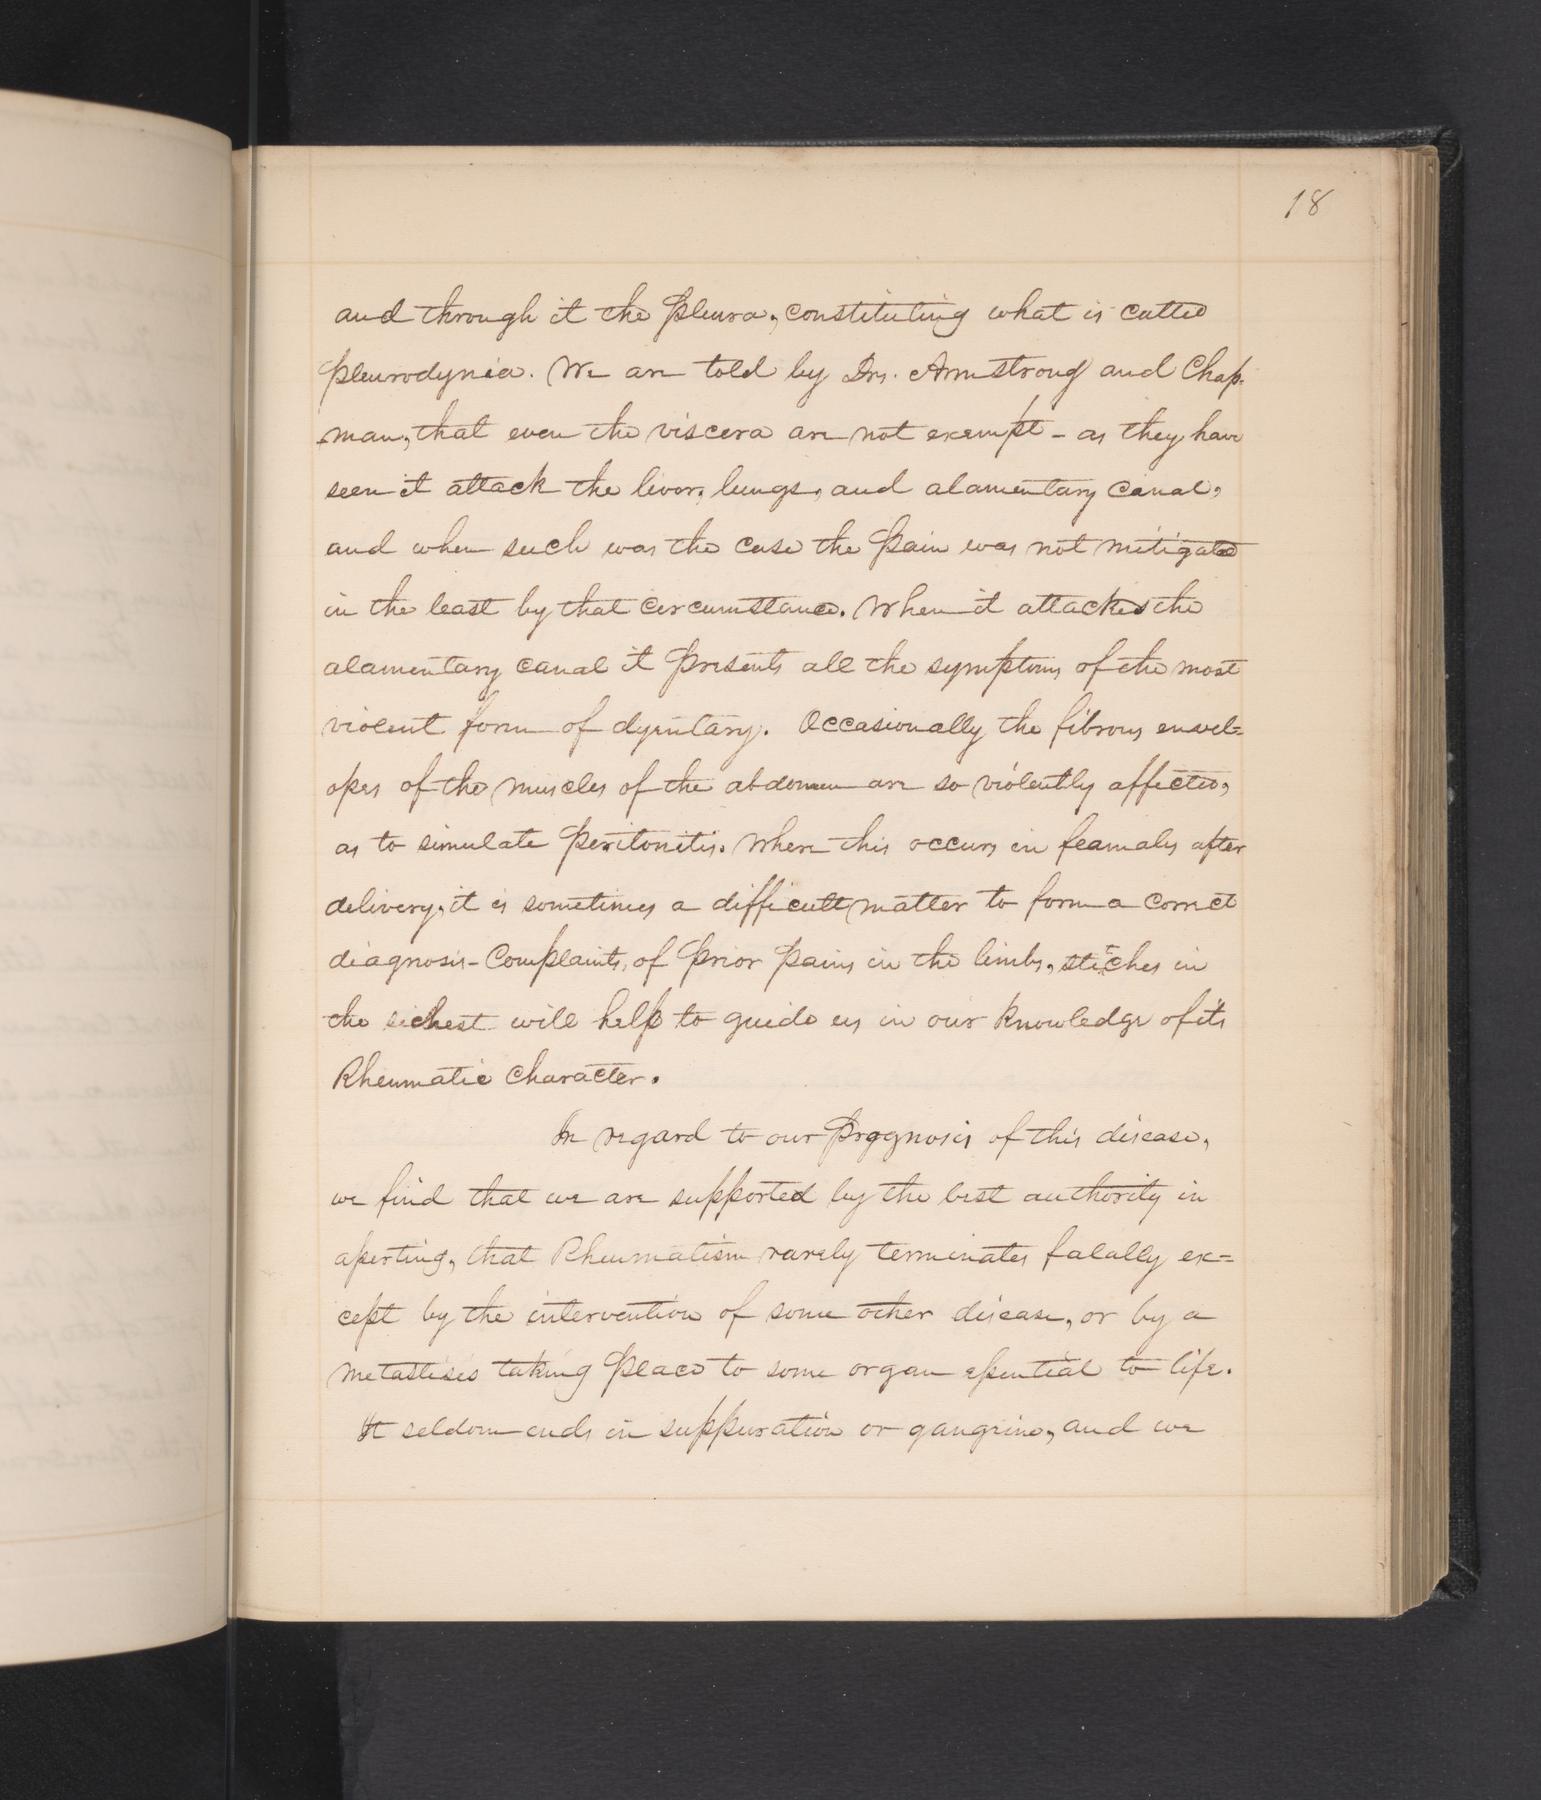 18
and through it the Pleura, constituting what is called
Pleurodynia. We are told by Drs. Armstrong and Chap-
man, that even the viscera are not exempt - as they have
seen it attack the liver, lungs, and alamentary Canal,
and when such was the case the Pain was not mitigated
in the least by that Circumstance. When it attacks the
alamentary canal it presents all the symptoms of the most
violent form of dysentary. Occasionally the fibrous envel=
opes of the muscles of the abdomen are so violently affected,
as to simulate Peritonitis. When this occurs in feamales after
delivery, it is sometimes a difficult matter to form a correct
diagnosis - Complaints, of Prior Pains in the limbs, stiches in
the chest will help to guide us in our knowledge of its
Rheumatic Character.
In regard to our Prognosis of this disease,
we find that we are supported by the best authority in
asserting, that Rheumatism rarely terminates fatally ex=
cept by the intervention of some other disease, or by a
metastisis taking Place to some organ essential to life.
It seldom ends in suppuration or gangrine, and we